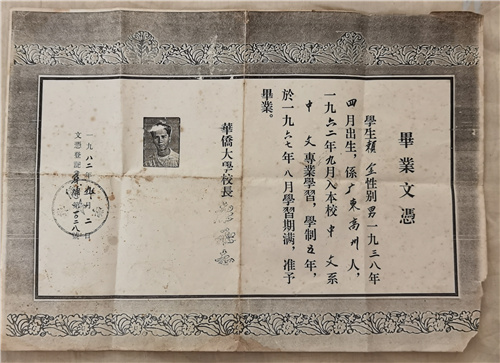 畢業文憑
學生 全性別男一九三八年
四月出生,係广東高州人,
一九六二年九月入本校中文系
中文專業學習,學制五年,
於一九六七年八月學習期满,准予
畢業。
華僑大學校長
一九八二年 月二日
文憑登記 号